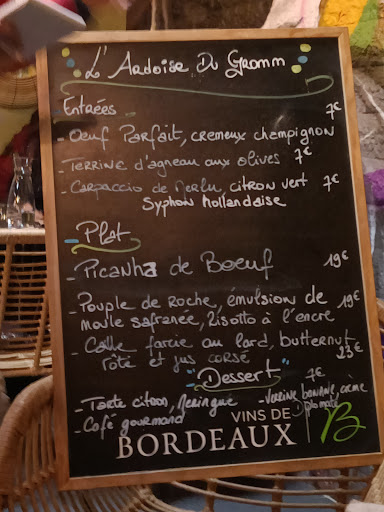 L'Ardoise Du Gromm
Entrées 7€
- Oeuf Parfait, cremeux champignon
- Terrine d'agneau aux olives 7€
- Carpaccio de Merlu, citron vert 7€
Syphon Hollandaise
- Plat
- Picanha de Boeuf 19€
- Poulpe de Roche, émulsion de 19€
moule safranée, Risotto à l'encre
- Caille farcie au lard, butternut
rôti et jus corsé 23€
"Dessert"
7€
- Tarte citron, Meringue - Verrine banane, crème
- Café gourmand Diplomate
VINS DE
BORDEAUX B